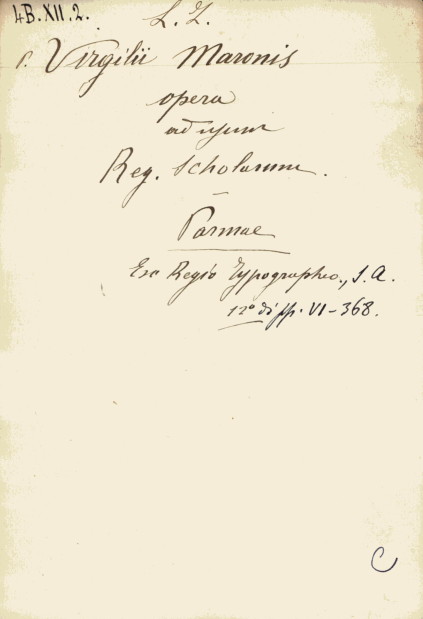 4B. XII. 2.
L. L.
P. Virgilii Maronis
opera
ad usum
Reg. Scholarum.
Parmae
Ex Regio Typographeo., S. A.
12° di pp. VI-368.
C